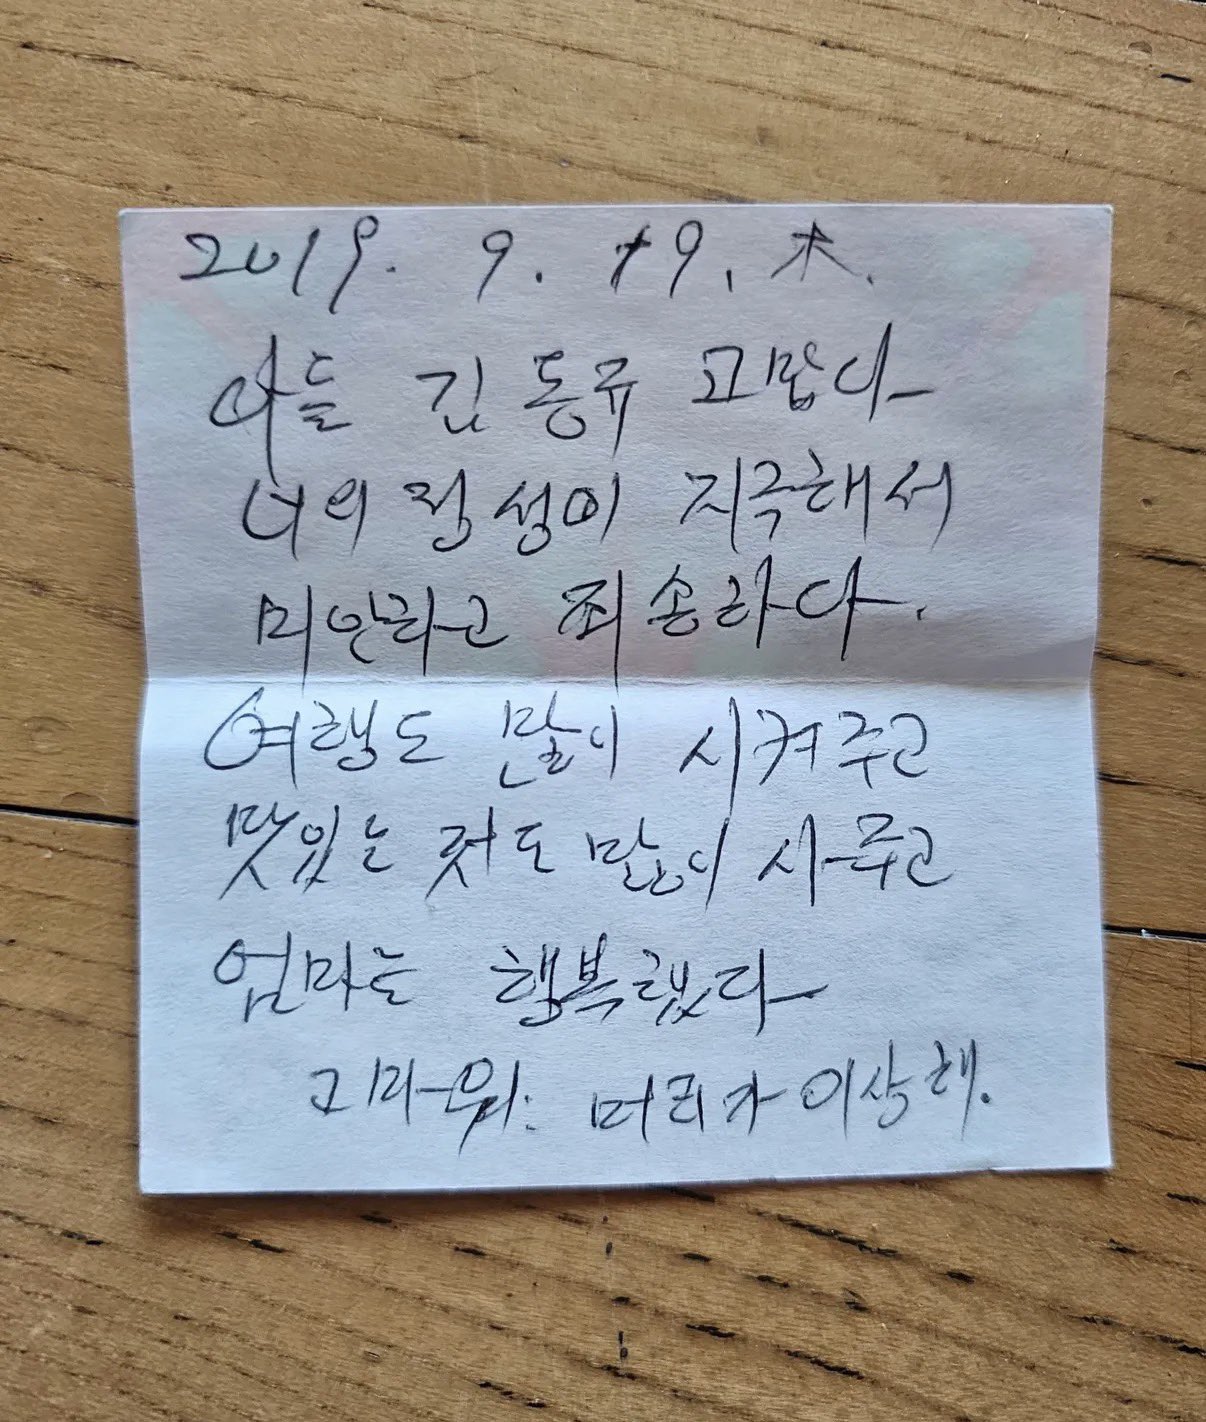 2019. 9. 19. 木.
아들 김동규 고맙다
너의 정성이 지극해서
미안하고 죄송하다.
여행도 많이 시켜주고
맛있는 것도 많이 사주고
엄마는 행복했다
고마워. 머리가 이상해.